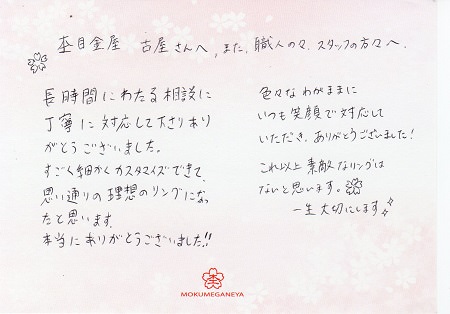 杢目金屋 古屋さんへ, また, 職人の々, スタッフの方々へ.
長時間にわたる相談に
丁寧に対応して下さりあり
がとうございました。
すごく細かくカスタマイズできて、
思い通りの理想のリングになっ
たと思います。
本当にありがとうございました!!
色々なわがままに
いつも笑顔で対応して
いただき、ありがとうございました!
これ以上素敵なリングは
ないと思います。
一生大切にします
MOKUMEGANEYA